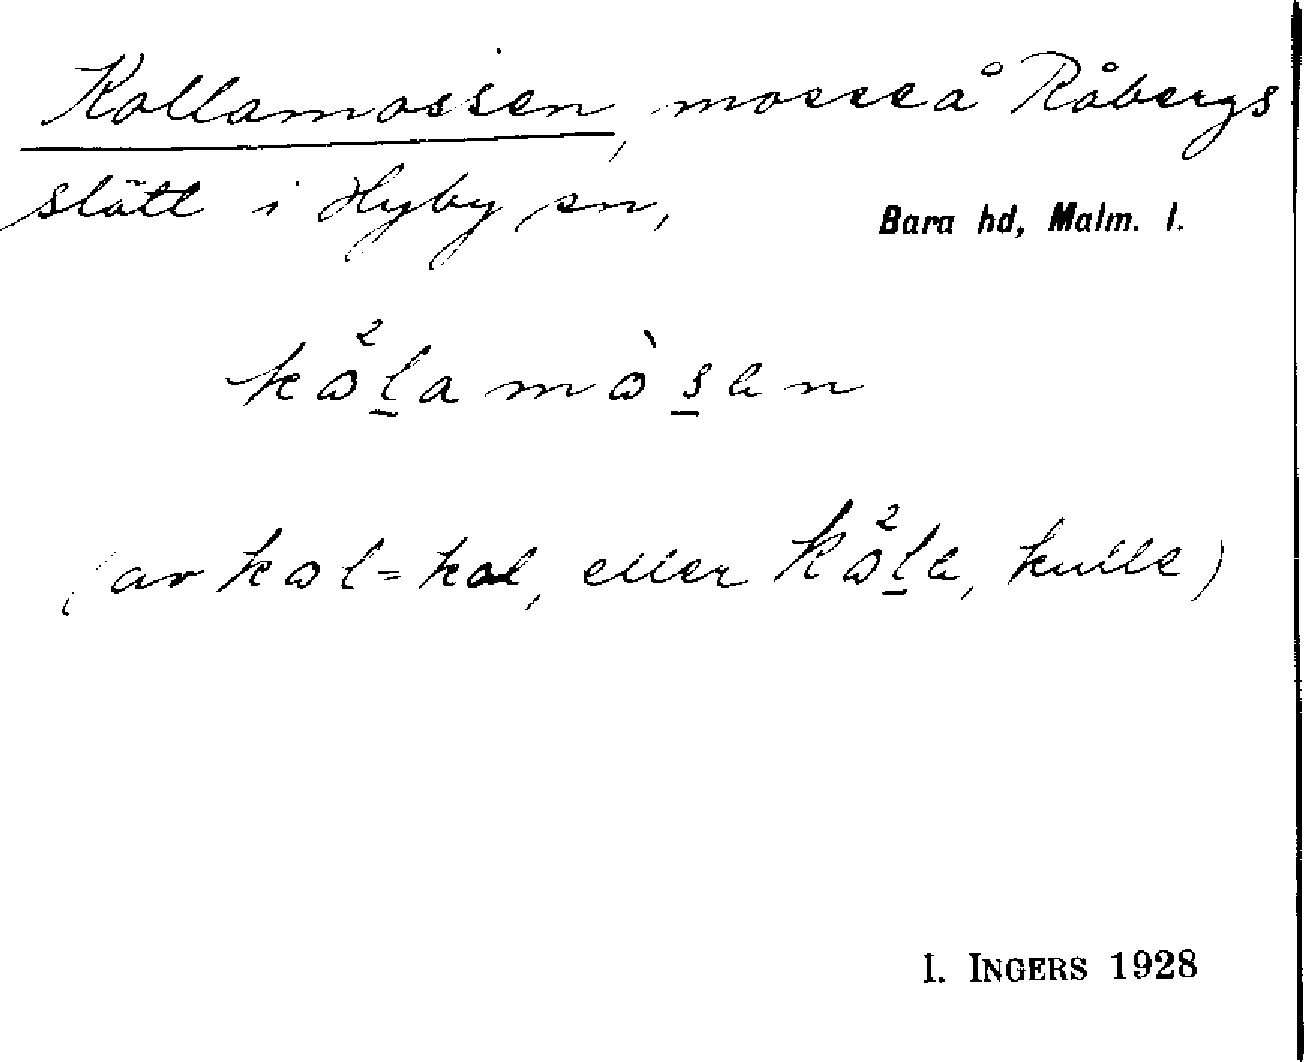 Kollamossen, mosse å Råbergs
slätt i Hyby sn, Bara hd, Malm. l.
kɷ²l̠amɷ̀s̠ən
(av kɷl = kol, eller kɷ²l̠ə, kulle)
I. INGERS 1928